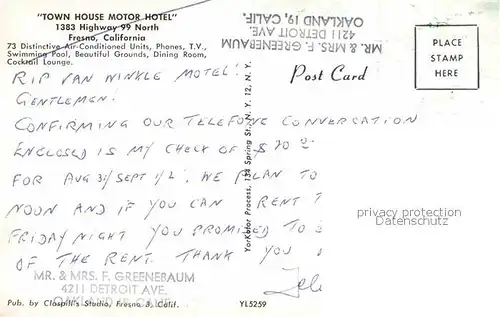 "TOWN HOUSE MOTOR HOTEL"
1383 Highway 99 North
Fresno, California
73 Distinctive Air-Conditioned Units, Phones, T.V.,
Swimming Pool, Beautiful Grounds, Dining Room,
Cocktail Lounge.
MR. & MRS. F. GREENEBAUM
4211 DETROIT AVE.
OAKLAND 19, CALIF.
Post Card
PLACE
STAMP
HERE
RIP VAN WINKLE MOTEL!
GENTLEMEN!
CONFIRMING OUR TELEFONE CONVERSATION
ENCLOSED IS MY CHECK OF $20
FOR AUG 31/SEPT 1/2. WE PLAN TO
NOON AND IF YOU CAN RENT T
FRIDAY NIGHT YOU PROMISED TO
OF THE RENT. THANK YOU
MR. & MRS. F. GREENEBAUM
4211 DETROIT AVE.
OAKLAND 19, CALIF.
Pub. by Claspill's Studio, Fresno 3, Calif.
YL5259
Yorkolor Process, 134 Spring St., N. Y. 12, N. Y.
privacy protection
Datenschutz